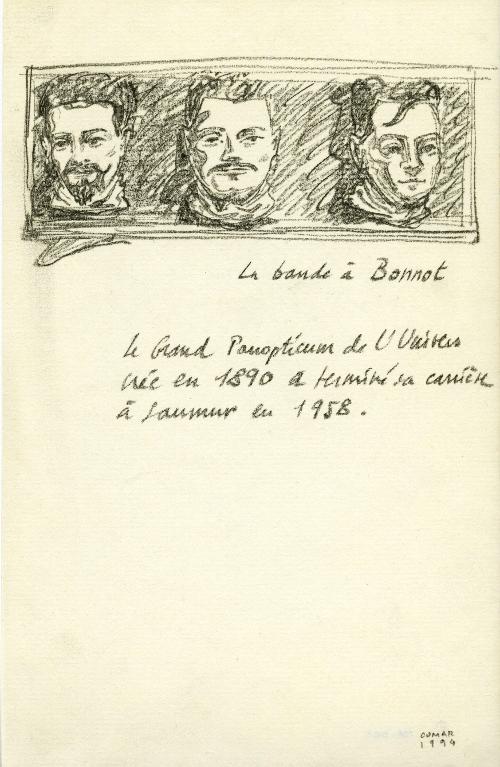 La bande à Bonnot
Le Grand Panopticum de L'Univers
créé en 1890 a terminé sa carrière
à Saumur en 1958.
OUMAR
1994